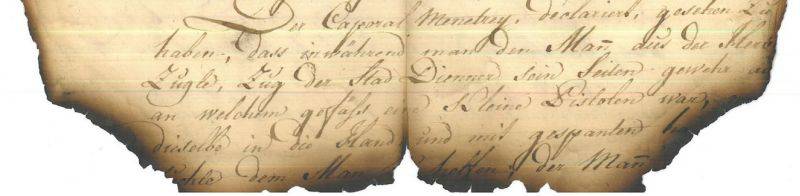 Der Caporal Menetrey, declariert, gesehen zu
haben, dass inwährend man den Mañ aus der
Zugle, Zug der Stad Dienner sein Seiten gewehr
an welchem gefäss eine Kleine Pistolen war,
dieselbe in die Hand und mit gespanten
dem der Mañ